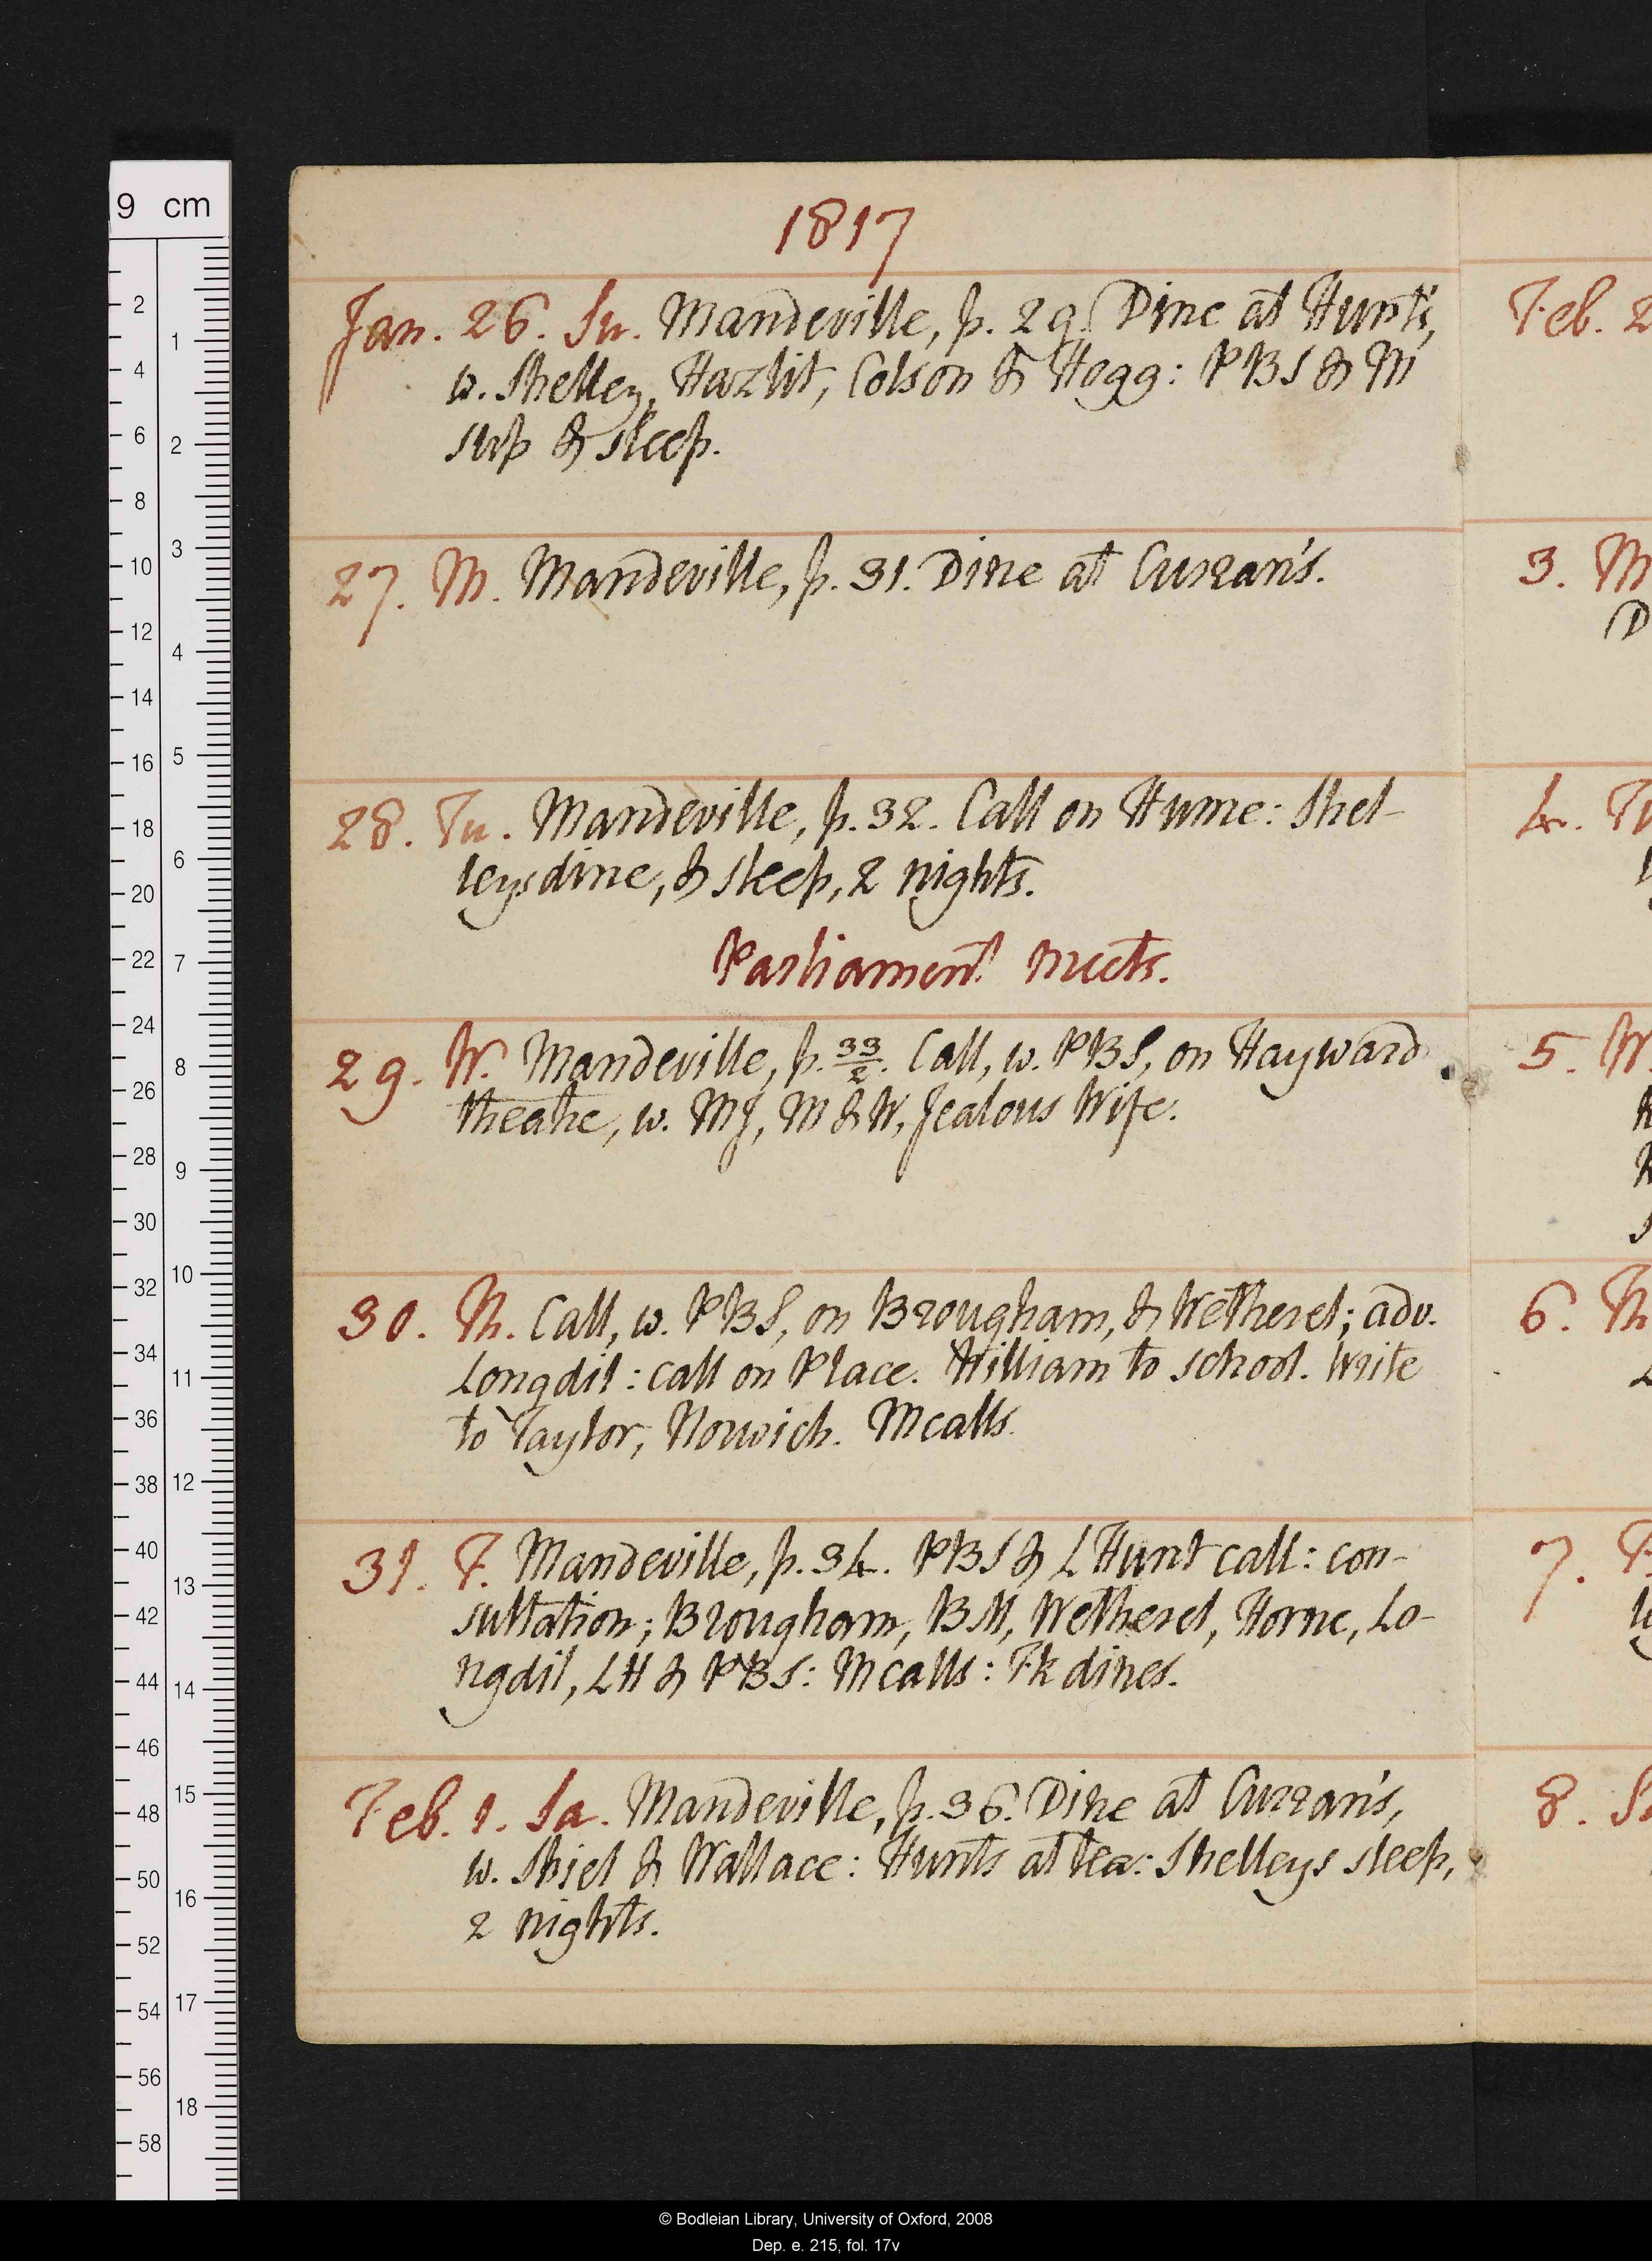 1817
Jan. 26. Su. Mandeville, p. 29. Dine at Hunt's,
w. Shelley, Hazlit, Colson & Hogg: PBS & M
sup & sleep.
27. M. Mandeville, p. 31. Dine at Curran's.
28. Tu. Mandeville, p. 32. Call on Hume: Shel-
leys dine, & sleep, 2 nights.
Parliament meets.
29. W. Mandeville, p. 33/2. Call, w. PBS, on Hayward
theatre, w. MJ, M & W, Jealous Wife.
30. Th. Call, w. PBS, on Brougham, & Wetherel; adv.
Longdil: call on Place. William to school. Write
to Taylor, Norwich. M calls.
31. F. Mandeville, p. 34. PBS & L Hunt call: con-
sultation; Brougham, BM, Wetherel, Horne, Lo-
ngdil, LH & PBS: M calls: Fk dines.
Feb. 1. Sa. Mandeville, p. 36. Dine at Curran's,
w. Shiel & Wallace: Hunts at tea: Shelleys sleep,
2 nights.
Feb. 2
3. M
D
4. Tu
5. W
6. Th
7. F
8. Sa
9 cm
2
4
6
8
10
12
14
16
18
20
22
24
26
28
30
32
34
36
38
40
42
44
46
48
50
52
54
56
58
1
2
3
4
5
6
7
8
9
10
11
12
13
14
15
16
17
18
© Bodleian Library, University of Oxford, 2008
Dep. e. 215, fol. 17v